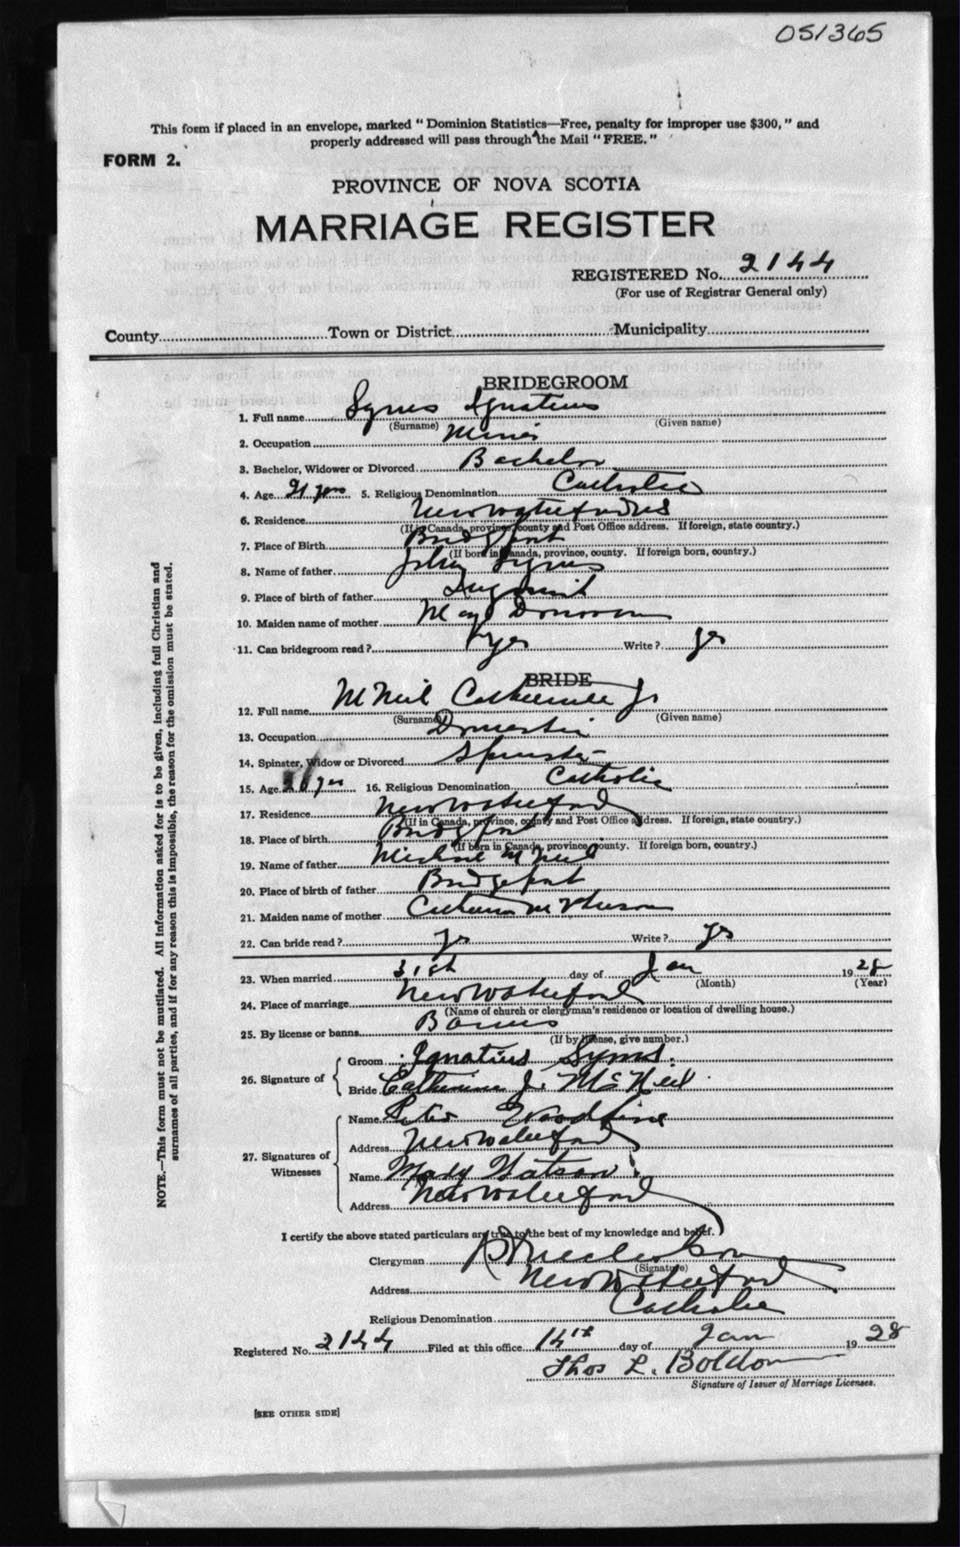 051365
This form if placed in an envelope, marked "Dominion Statistics—Free, penalty for improper use $300," and
properly addressed will pass through the Mail "FREE."
FORM 2.
PROVINCE OF NOVA SCOTIA
MARRIAGE REGISTER
REGISTERED No. 2144
(For use of Registrar General only)
County Town or District Municipality
BRIDEGROOM
1. Full name Syms Ignatius
(Surname) (Given name)
2. Occupation Miner
3. Bachelor, Widower or Divorced Bachelor
4. Age 21 yrs 5. Religious Denomination Catholic
6. Residence New Waterford
(If in Canada, province, county and Post Office address. If foreign, state country.)
7. Place of Birth Bridgeport
(If born in Canada, province, county. If foreign born, country.)
8. Name of father John Syms
9. Place of birth of father
10. Maiden name of mother May Donovan
11. Can bridegroom read? yes Write? yes
BRIDE
12. Full name McNeil Catherine J
(Surname) (Given name)
13. Occupation Domestic
14. Spinster, Widow or Divorced Spinster
15. Age 20 yrs 16. Religious Denomination Catholic
17. Residence New Waterford
(If in Canada, province, county and Post Office address. If foreign, state country.)
18. Place of birth Bridgeport
(If born in Canada, province, county. If foreign born, country.)
19. Name of father Michael McNeil
20. Place of birth of father Bridgeport
21. Maiden name of mother Catherine McPherson
22. Can bride read? yes Write? yes
23. When married 31st day of Jan 1928
(Month) (Year)
24. Place of marriage New Waterford
(Name of church or clergyman's residence or location of dwelling house.)
25. By license or banns Banns
(If by license, give number.)
26. Signature of
Groom Ignatius Syms.
Bride Catherine J. McNeil.
27. Signatures of Witnesses
Name Peter Woodfine
Address New Waterford
Name Mary Watson
Address New Waterford
I certify the above stated particulars are true to the best of my knowledge and belief.
Clergyman
(Signature)
Address New Waterford
Religious Denomination Catholic
Registered No. 2144 Filed at this office 14th day of Jan 1928
Thos L. Boldon
Signature of Issuer of Marriage Licenses.
[SEE OTHER SIDE]
NOTE.—This form must not be mutilated. All information asked for is to be given, including full Christian and
surnames of all parties, and if for any reason this is impossible, the reason for the omission must be stated.